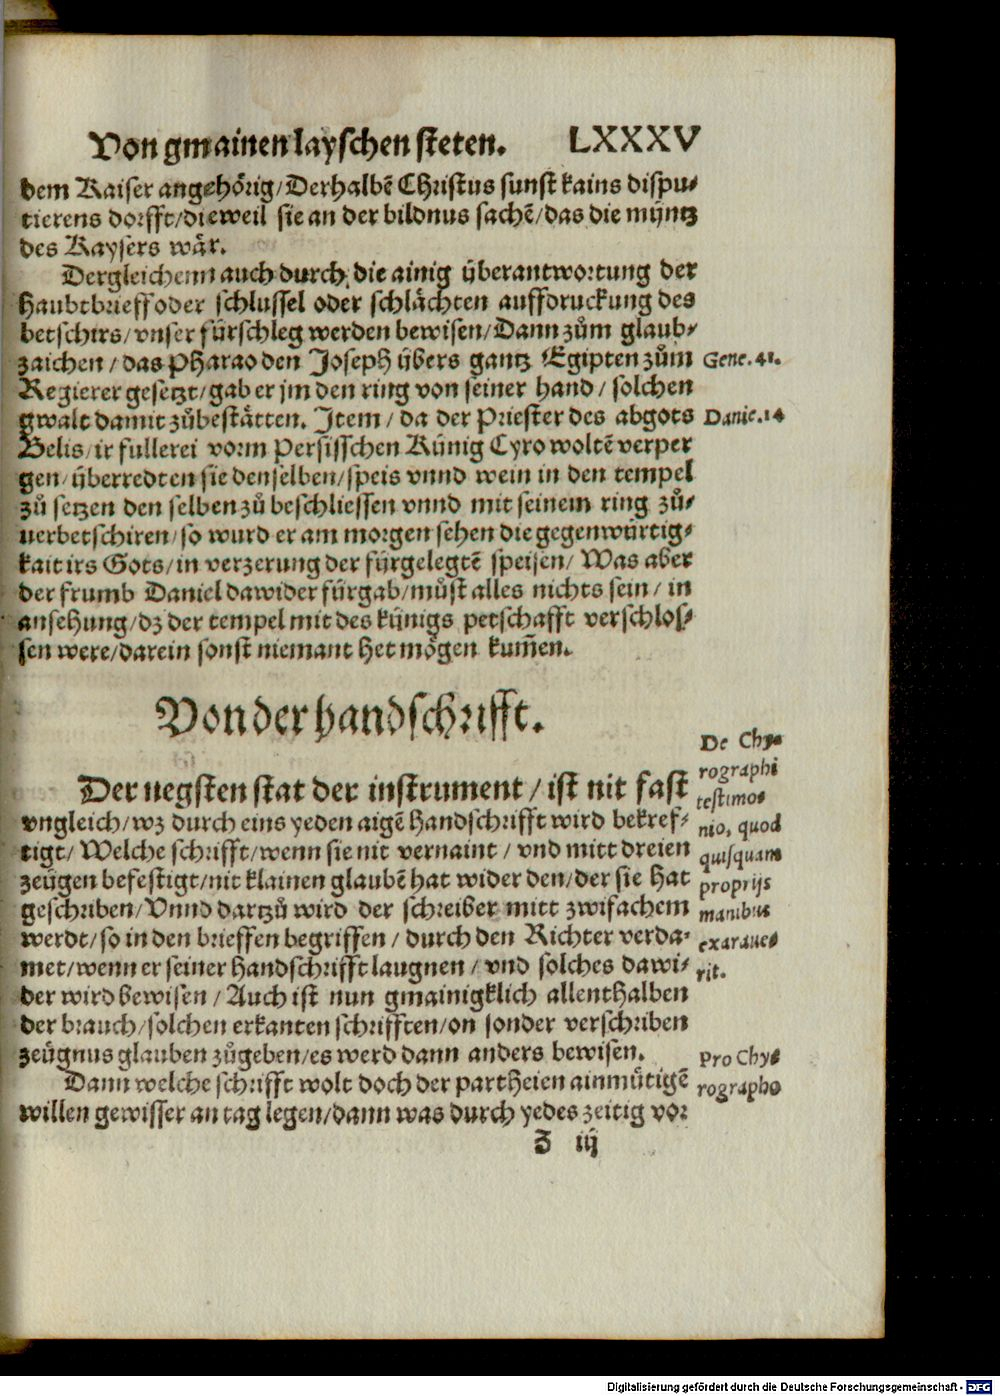 Von gmainen layschen steten. LXXXV
dem Kaiser angehörig/Derhalbē Christus sunst kains dispu-
tierens dorfft/dieweil sie an der bildnus sachē/das die müntz
des Kaysers wär.
Dergleichenn auch durch die ainig überantwortung der
haubtbrieff oder schlussel oder schlächten auffdruckung des
betschirs/vnser fürschleg werden bewisen/Dann zům glaub-
zaichen/das Pharao den Joseph übers gantz Egipten zům
Gene. 41.
Regierer gesetzt/gab er jm den ring von seiner hand/solchen
gwalt damit zůbestätten. Item/da der Priester des abgots
Danie. 14
Belis/ir fullerei vorm Persisschen Künig Cyro woltē verper
gen/überredten sie denselben/speis vnnd wein in den tempel
zů setzen den selben zů beschliessen vnnd mit seinem ring zů-
uerbetschiren/so wurd er am morgen sehen die gegenwürtig-
kait irs Gots/in verzerung der fürgelegtē speisen/Was aber
der frumb Daniel dawider fürgab/můst alles nichts sein/in
ansehung/dz der tempel mit des künigs petschafft verschlos-
sen were/darein sonst niemant het mögen kum̄en.
Von der handschrifft.
Der negsten stat der instrument/ist nit fast
vngleich/wz durch eins yeden aigē handschrifft wird bekref-
tigt/Welche schrifft/wenn sie nit vernaint/vnd mitt dreien
zeügen befestigt/nit klainen glaubē hat wider den/der sie hat
geschriben/Vnnd dartzů wird der schreiber mitt zwifachem
werdt/so in den brieffen begriffen/durch den Richter verda-
met/wenn er seiner handschrifft laugnen/vnd solches dawi-
der wird bewisen/Auch ist nun gmainigklich allenthalben
der brauch/solchen erkanten schrifften/on sonder verschriben
zeügnus glauben zůgeben/es werd dann anders bewisen.
De Chy-
rographi
testimo-
nio, quod
quisquam
proprijs
manibus
exaraue-
rit.
Dann welche schrifft wolt doch der partheien ainmütigē
willen gewisser an tag legen/dann was durch yedes zeitig vor
Pro Chy-
rographo
Z iij
Digitalisierung gefördert durch die Deutsche Forschungsgemeinschaft - DFG